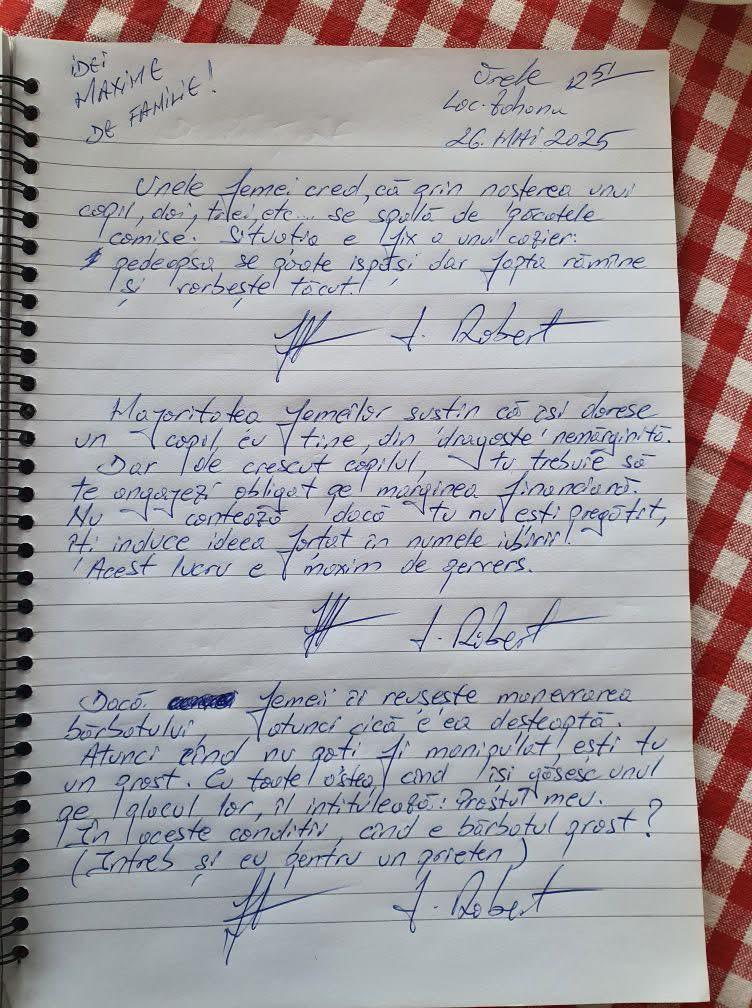 IDEI
MAXIME
DE FAMILIE!
Orele 12 51
Loc. Zohonu
26. MAI 2025
Unele femei cred, că prin nașterea unui
copil, doi, trei, etc... se spală de păcatele
comise. Situația e fix a unui cazier:
pedeapsa se poate ispăși dar fapta rămîne
și vorbește tăcut.
J. Robert
Majoritatea femeilor susțin că își doresc
un copil cu tine, din dragoste nemărginită.
Dar de crescut copilul, tu trebuie să
te angajezi obligat pe marginea financiară.
Nu contează dacă tu nu ești pregătit,
îți induce ideea forțat în numele iubirii!
Acest lucru e maxim de pervers.
J. Robert
Dacă femeii îi reușește manevrarea
bărbatului, atunci cică e ea deșteaptă.
Atunci cînd nu poți fi manipulat ești tu
un prost. Cu toate astea, cînd își găsesc unul
pe placul lor, îl intitulează: Prostul meu.
În aceste condiții, cînd e bărbatul prost?
(Întreb și eu pentru un prieten)
J. Robert